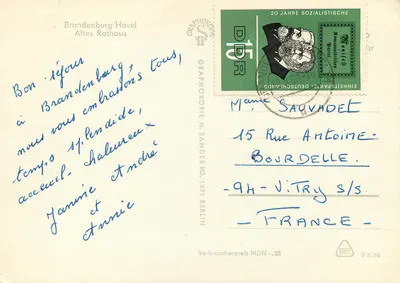 Brandenburg/Havel
Altes Rathaus
Bon séjour
à Brandenburg,
nous vous embrassons tous,
temps splendide,
accueil chaleureux
Janine André
et
Annie
GRAPHOKOPIE H. SANDER KG, 1071 BERLIN
20 JAHRE SOZIALISTISCHE
EINHEITSPARTEI DEUTSCHLANDS
DDR
15
Marie SAUVADET
15 Rue Antoine-
BOURDELLE.
94-VITRY S/S.
-FRANCE-
Verbraucherpreis MDN -,20